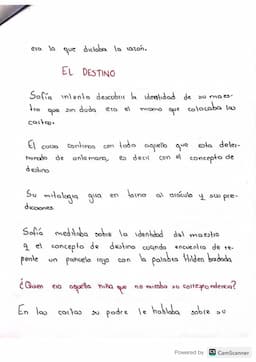 era la que dictaba la razón.
EL DESTINO
Sofía intenta descubrir la identidad de su maes-
tro que sin duda era el mismo que colocaba las
cartas.
El curso continua con todo aquello que esta deter-
minado de antemano, es decir con el concepto de
destino
Su mitologia gira en torno al oráculo y sus pre-
dicciones
Sofía meditaba sobre la identidad del maestro
y el concepto de destino cuando encuentra de re-
pente un pañuelo rojo con la palabra Hilden bordada
¿Quien era aquella niña que no recibia su correspondencia?
En las cartas su padre le hablaba sobre su
Powered by CS CamScanner